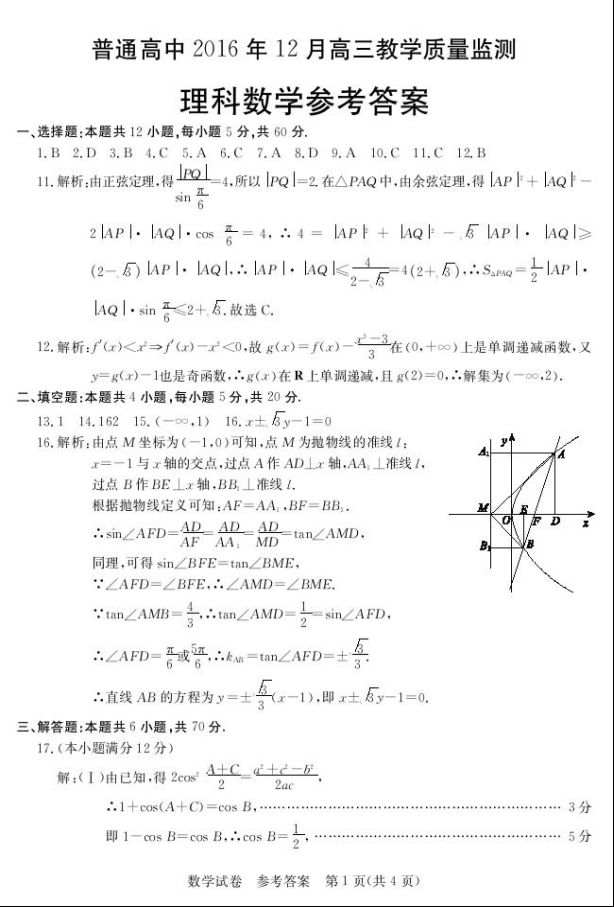 普通高中 2016 年 12 月高三教学质量监测
理科数学参考答案
一、选择题:本题共 12 小题,每小题 5 分,共 60 分.
1. B 2. D 3. B 4. C 5. A 6. C 7. A 8. D 9. A 10. C 11. C 12. B
11. 解析:由正弦定理,得 |PQ| / sin π/6 =4,所以 |PQ|=2. 在△PAQ 中,由余弦定理,得 |AP|²+|AQ|²-
2|AP|·|AQ|·cos π/6 = 4, ∴ 4 = |AP|² + |AQ|² - √3 |AP|·|AQ|≥
(2-√3) |AP|·|AQ|,∴ |AP|·|AQ|≤ 4/(2-√3) =4(2+√3),∴S△PAQ= 1/2 |AP|·
|AQ|·sin π/6 ≤2+√3. 故选 C.
12. 解析:f′(x)<x²⇒f′(x)-x²<0,故 g(x)=f(x)- (x³-3)/3 在(0,+∞)上是单调递减函数,又
y=g(x)-1也是奇函数,∴g(x)在 R 上单调递减,且 g(2)=0,∴解集为(-∞,2).
二、填空题:本题共 4 小题,每小题 5 分,共 20 分.
13. 1 14. 162 15. (-∞,1) 16. x±√3y-1=0
16. 解析:由点 M 坐标为(-1,0)可知,点 M 为抛物线的准线 l:
x=-1 与 x 轴的交点,过点 A 作 AD⊥x 轴,AA₁⊥准线 l,
过点 B 作 BE⊥x 轴,BB₁⊥准线 l.
根据抛物线定义可知:AF=AA₁,BF=BB₁.
∴sin∠AFD= AD/AF = AD/AA₁ = AD/MD =tan∠AMD,
同理,可得 sin∠BFE=tan∠BME,
∵∠AFD=∠BFE,∴∠AMD=∠BME.
∵tan∠AMB= 4/3,∴tan∠AMD= 1/2 =sin∠AFD,
∴∠AFD= π/6 或 5π/6,∴k_AB=tan∠AFD=± √3/3.
∴直线 AB 的方程为 y=± √3/3 (x-1),即 x±√3y-1=0.
y
A₁
A
M
O
E
F
D
x
B₁
B
三、解答题:本题共 6 小题,共 70 分.
17. (本小题满分 12 分)
解:(Ⅰ)由已知,得 2cos² (A+C)/2 = (a²+c²-b²)/2ac,
∴1+cos(A+C)=cos B,…………………………………………………… 3 分
即 1-cos B=cos B,∴cos B= 1/2,………………………………………… 5 分
数学试卷 参考答案 第 1 页(共 4 页)